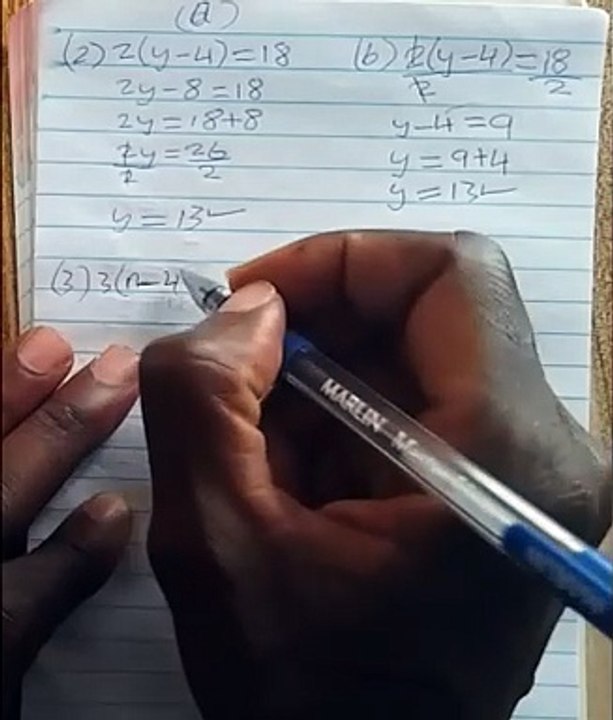 (a)
(2) 2(y-4)=18
2y-8=18
2y=18+8
2y/2=26/2
y=13✓
(b) 2(y-4)/2=18/2
y-4=9
y=9+4
y=13✓
(3) 3(n-4)
MARLIN M